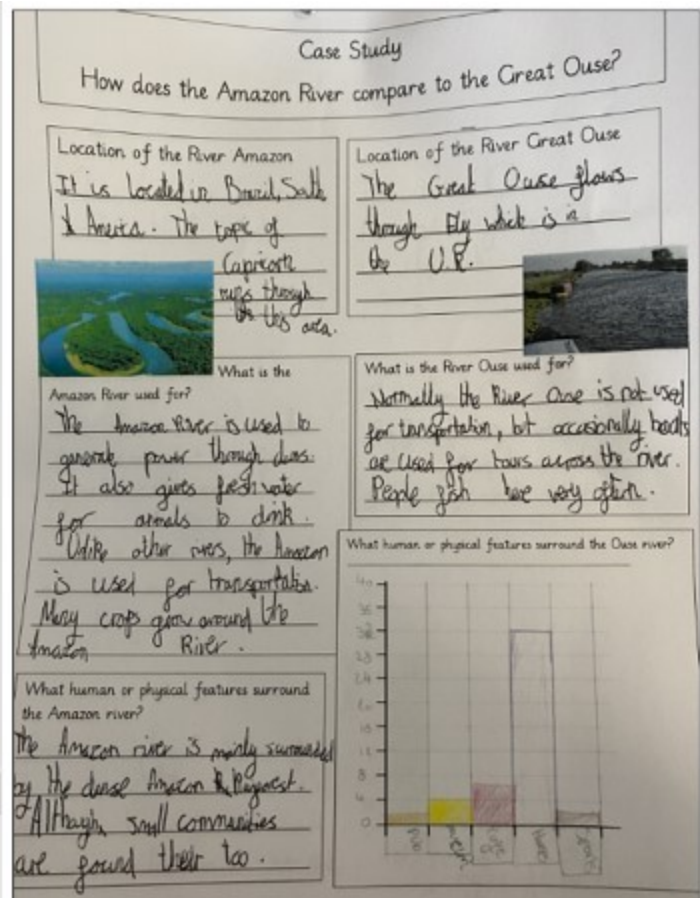 Case Study
How does the Amazon River compare to the Great Ouse?
Location of the River Amazon
It is located in Brazil, South
America. The topic of
Capricorn
runs through
this area.
Location of the River Great Ouse
The Great Ouse flows
through Ely which is in
the U.K.
What is the
Amazon River used for?
The Amazon River is used to
generate power through dams.
It also gives fresh water
for animals to drink.
Unlike other rivers, the Amazon
is used for transportation.
Many crops grow around the
Amazon River.
What is the River Ouse used for?
Normally the River Ouse is not used
for transportation, but occasionally boats
are used for tours across the river.
People fish here very often.
What human or physical features surround
the Amazon river?
The Amazon river is mainly surrounded
by the dense Amazon
Although, small communities
are found their too.
What human or physical features surround the Ouse river?
40
36
24
8
0